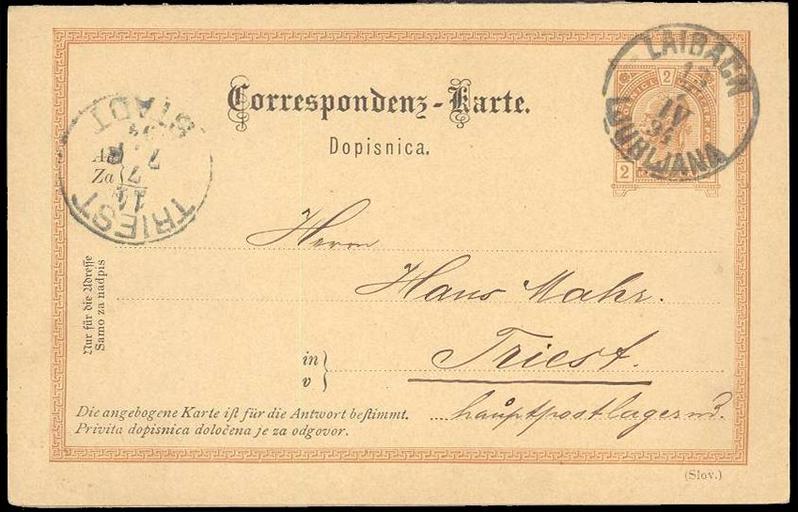 LAIBACH
IV
94
LJUBLJANA
2
2
Correspondenz-Karte.
Dopisnica.
TRIEST
STADT
An
Za
Herrn
Hans Mahr.
in
v
Triest.
hauptpostlagernd.
Nur für die Adresse
Samo za nadpis
Die angebogene Karte ist für die Antwort bestimmt.
Privita dopisnica določena je za odgovor.
(Slov.)